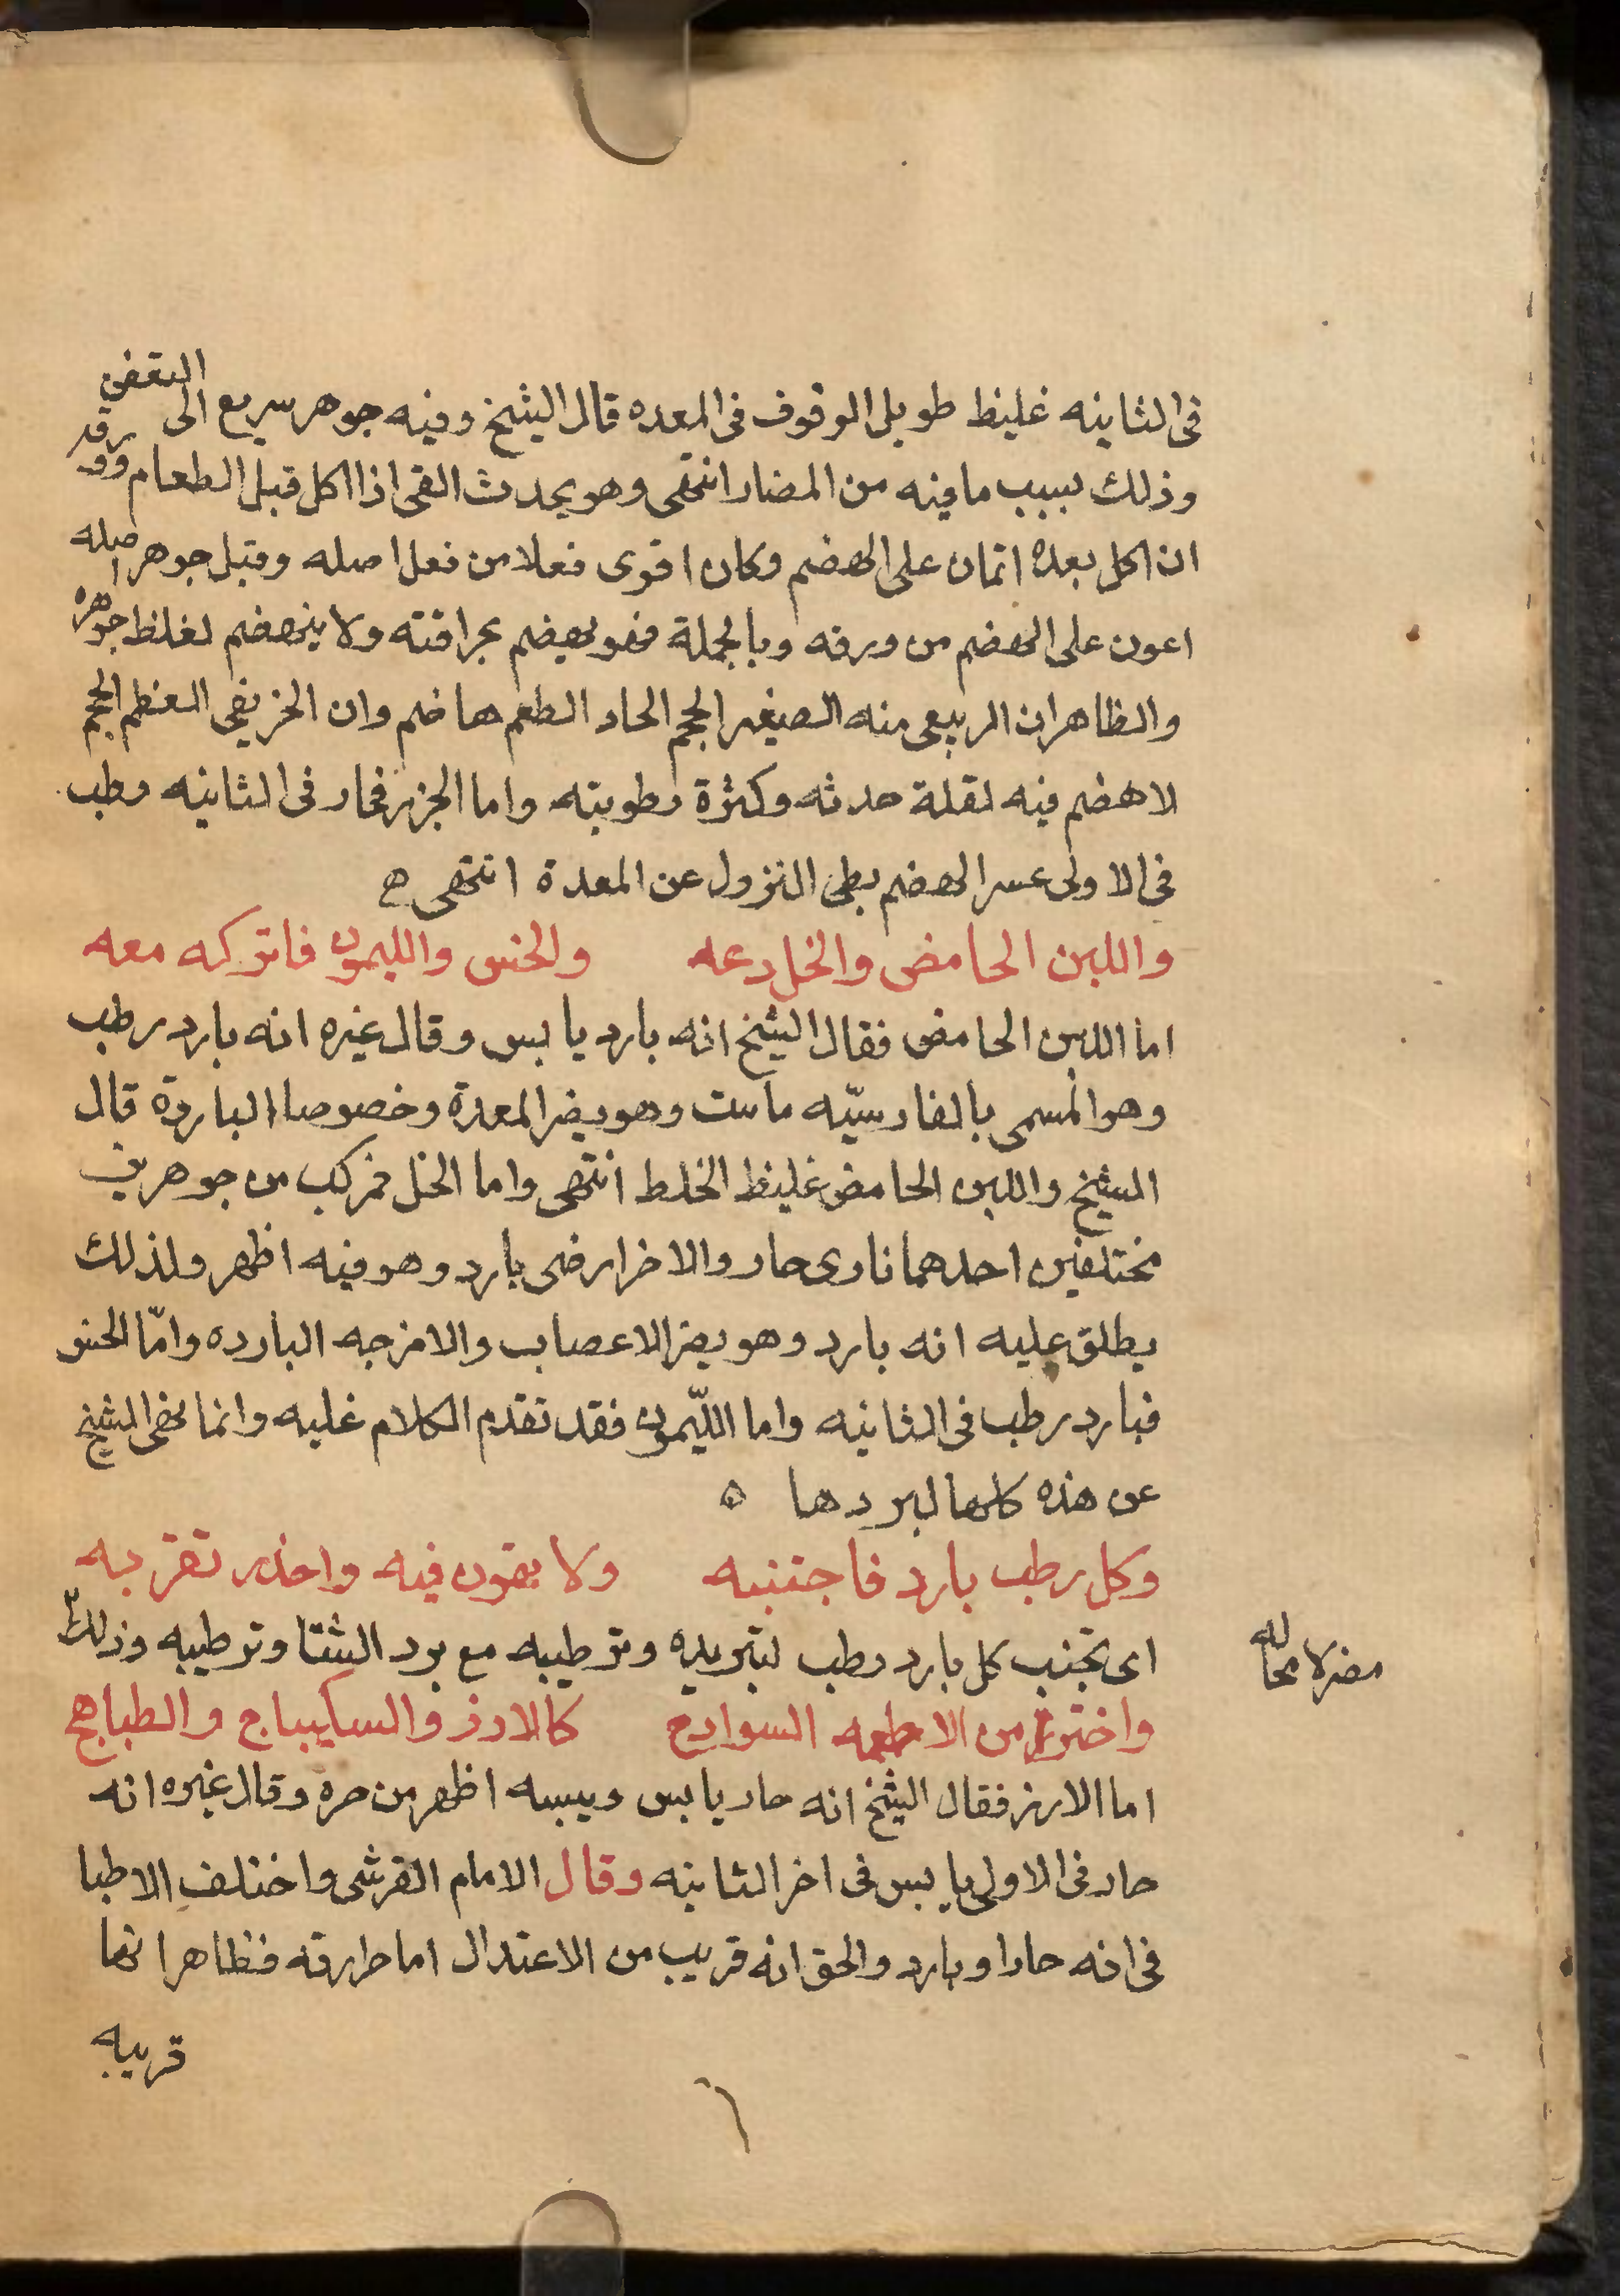 في الثانيه غليظ طويل الوقوف في المعده قال الشيخ وفيه جوهر سريع الى التعفن
وذلك بسبب ما فيه من المضار انتهى وهو يحدث القى اذا اكل قبل الطعام وورقه
ان اكل بعده اتمان على الهضم وكان اقوى فعلا من فعل اصله وقيل جوهر اصله
اعون على الهضم من ورقه وبالجملة فهو يهضم بحرافته ولا ينهضم لغلظ جوهره
والظاهر ان الربيعى منه الصغير الحجم الحاد الطعم هاضم وان الخريفي العظم الحجم
لا هضم فيه لقلة حدته وكثرة رطوبته واما الجزر فحار في الثانيه رطب
في الاولى عسر الهضم بطى النزول عن المعدة انتهى ه
واللبن الحامض والخل دعه والخس والليمون فاتركه معه
اما اللبن الحامض فقال الشيخ انه بارد يابس وقال غيره انه بارد رطب
وهو المسمى بالفارسيّه ماست وهو يضر المعدة وخصوصا الباردة قال
الشيخ واللبن الحامض غليظ الخلط انتهى واما الخل فمركب من جوهرين
مختلفين احدهما نارى حار والاخر ارضى بارد وهو فيه اظهر ولذلك
يطلق عليه انه بارد وهو يضر الاعصاب والامزجه البارده وامّا الخس
فبارد رطب في الثانيه واما اللّيمون فقد تقدم الكلام عليه وانما نهى الشيخ
عن هذه كلها لبردها ه
وكل رطب بارد فاجتنبه ولا يفون فيه واحذر تقربه
اى تجنب كل بارد رطب لتبريده وترطيبه مع برد الشتا وترطيبه وذلك
مضر لا محاله
واخترن من الاطعمه السوادج كالارز والسكيباج والطباهج
اما الارز فقال الشيخ انه حار يابس ويبسه اظهر من حره وقال غيره انه
حار في الاولى يابس في اخر الثانيه وقال الامام القرشى واختلف الاطبا
في انه حار او بارد والحق انه قريب من الاعتدال اما حرارته فظاهر انها
قريبه